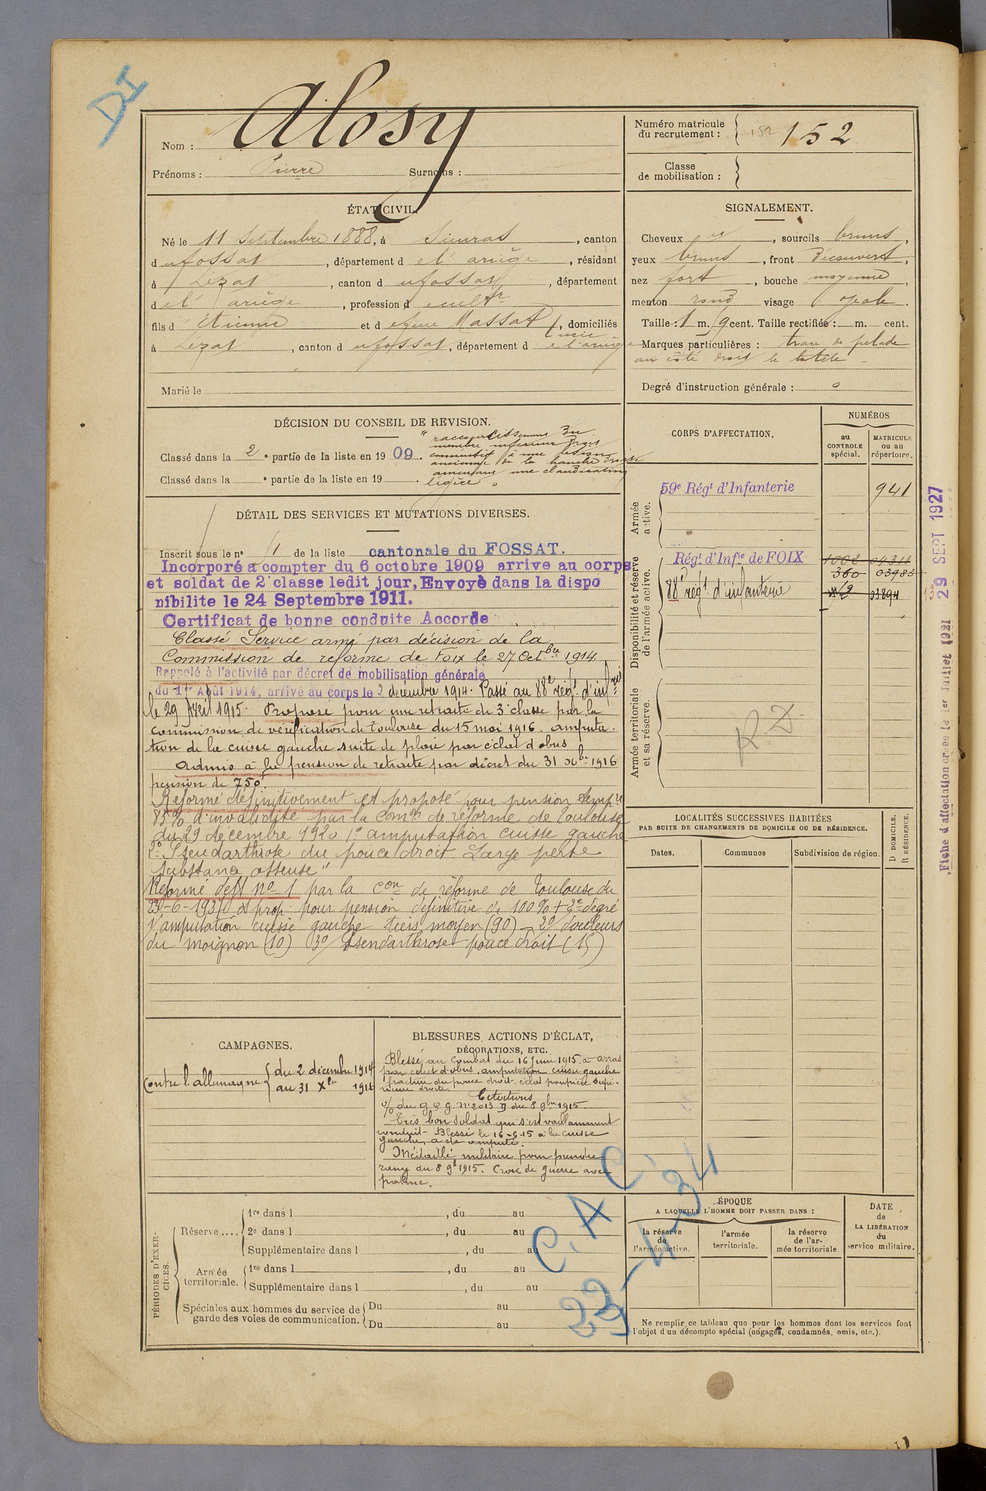 DI
Nom : Alosy
Prénoms : Pierre Surnoms :
Numéro matricule
du recrutement : 152 152
Classe
de mobilisation :
ÉTAT CIVIL.
Né le 11 Septembre 1888, à Sieuras, canton
du Fossat, département de l'ariège, résidant
à Lézat, canton du Fossat, département
de l' ariège, profession d
fils d' Etienne et d Massat, domiciliés
à Lézat, canton du fossat, département de l'ariège
Marié le
SIGNALEMENT.
Cheveux et, sourcils bruns,
yeux bruns, front Découvert,
nez fort, bouche moyenne
menton rond visage ovale.
Taille : 1 m. cent. Taille rectifiée : m. cent.
Marques particulières : trace de pelade
au côté droit de la tête
Degré d'instruction générale : 0
DÉCISION DU CONSEIL DE REVISION.
Classé dans la 2e partie de la liste en 1909. "raccourcissement du
membre inférieur droit
consécutif à une lésion
ancienne de la hanche droite
amenant une claudication
légère"
Classé dans la e partie de la liste en 19
DÉTAIL DES SERVICES ET MUTATIONS DIVERSES.
Inscrit sous le n° 11 de la liste cantonale du FOSSAT.
Incorporé à compter du 6 octobre 1909 arrivé au corps
et soldat de 2e classe ledit jour, Envoyé dans la dispo
nibilite le 24 Septembre 1911.
Certificat de bonne conduite Accordé
Classé Service armé par décision de la
Commission de réforme de Foix le 27 Octbre 1914.
Rappelé à l'activité par décret de mobilisation générale
du 1er Août 1914, arrivé au corps le 2 décembre 1914. Passé au 88e rég. d'infrie
le 29 Avril 1915. Proposé pour une retraite de 3e classe par la
commission de vérification de Toulouse du 15 mai 1916. amputa-
tion de la cuisse gauche suite de plaie par éclat d'obus
Admis à la pension de retraite par décret du 31 Xbre 1916
pension de 750f
Réformé définitivement et proposé pour pension tempre
85% d'invalidité par la comon de réforme de Toulouse
du 29 décembre 1920 1° amputation cuisse gauche
2° Pseudarthrose du pouce droit. Large perte
substance osseuse"
Réformé déff n° 1 par la con de réforme de Toulouse du
et prop. pour pension définitive de 100% + 2e degré
1° amputation cuisse gauche tiers moyen (90) - 2° douleurs
du moignon (10) 3° Pseudarthrose pouce droit (15)
CORPS D'AFFECTATION.
NUMÉROS
au
CONTROLE
spécial.
MATRICULE
ou au
répertoire.
Armée
active.
59e Régt d'Infanterie 941
Disponibilité et réserve
de l'armée active.
Régt d'Infie de FOIX 1002
360
88e régt d'infanterie
Armée territoriale
et sa réserve.
R D
Fiche d'affectation créée le 1er Juillet 1921
29 SEPT 1927
LOCALITÉS SUCCESSIVES HABITÉES
PAR SUITE DE CHANGEMENTS DE DOMICILE OU DE RÉSIDENCE.
Dates.
Communes
Subdivision de région.
D DOMICILE.
R RÉSIDENCE.
CAMPAGNES.
Contre l'allemagne du 2 décembre 1914
au 31 Xbre
BLESSURES, ACTIONS D'ÉCLAT,
DÉCORATIONS, ETC.
Blessé au Combat du 16 Juin 1915 à Arras
par éclat d'obus. amputation cuisse gauche
fraction du pouce droit. éclat paupière supé-
rieure droite.
Citations
o/ du G.Q.G. n° 2013 D du 8 9bre 1915
Très bon soldat qui s'est vaillamment
conduit - Blessé le 16-6-15 à la cuisse
gauche, a été amputé.
Médaillé militaire pour prendre
rang du 8 9bre 1915. Croix de guerre avec
palme.
PÉRIODES D'EXER-
CICES.
Réserve
1re dans l , du au
2e dans l , du au
Supplémentaire dans l , du au
Armée
territoriale.
1re dans l , du au
Supplémentaire dans l , du au
Spéciales aux hommes du service de
garde des voies de communication.
Du au
Du au
C.A.C.
ÉPOQUE
A LAQUELLE L'HOMME DOIT PASSER DANS :
la réserve
de
l'armée active.
l'armée
territoriale.
la réserve
de l'ar-
mée territoriale.
DATE
de
LA LIBÉRATION
du
service militaire.
Ne remplir ce tableau que pour les hommes dont les services font
l'objet d'un décompte spécial (engagés, condamnés, omis, etc.).